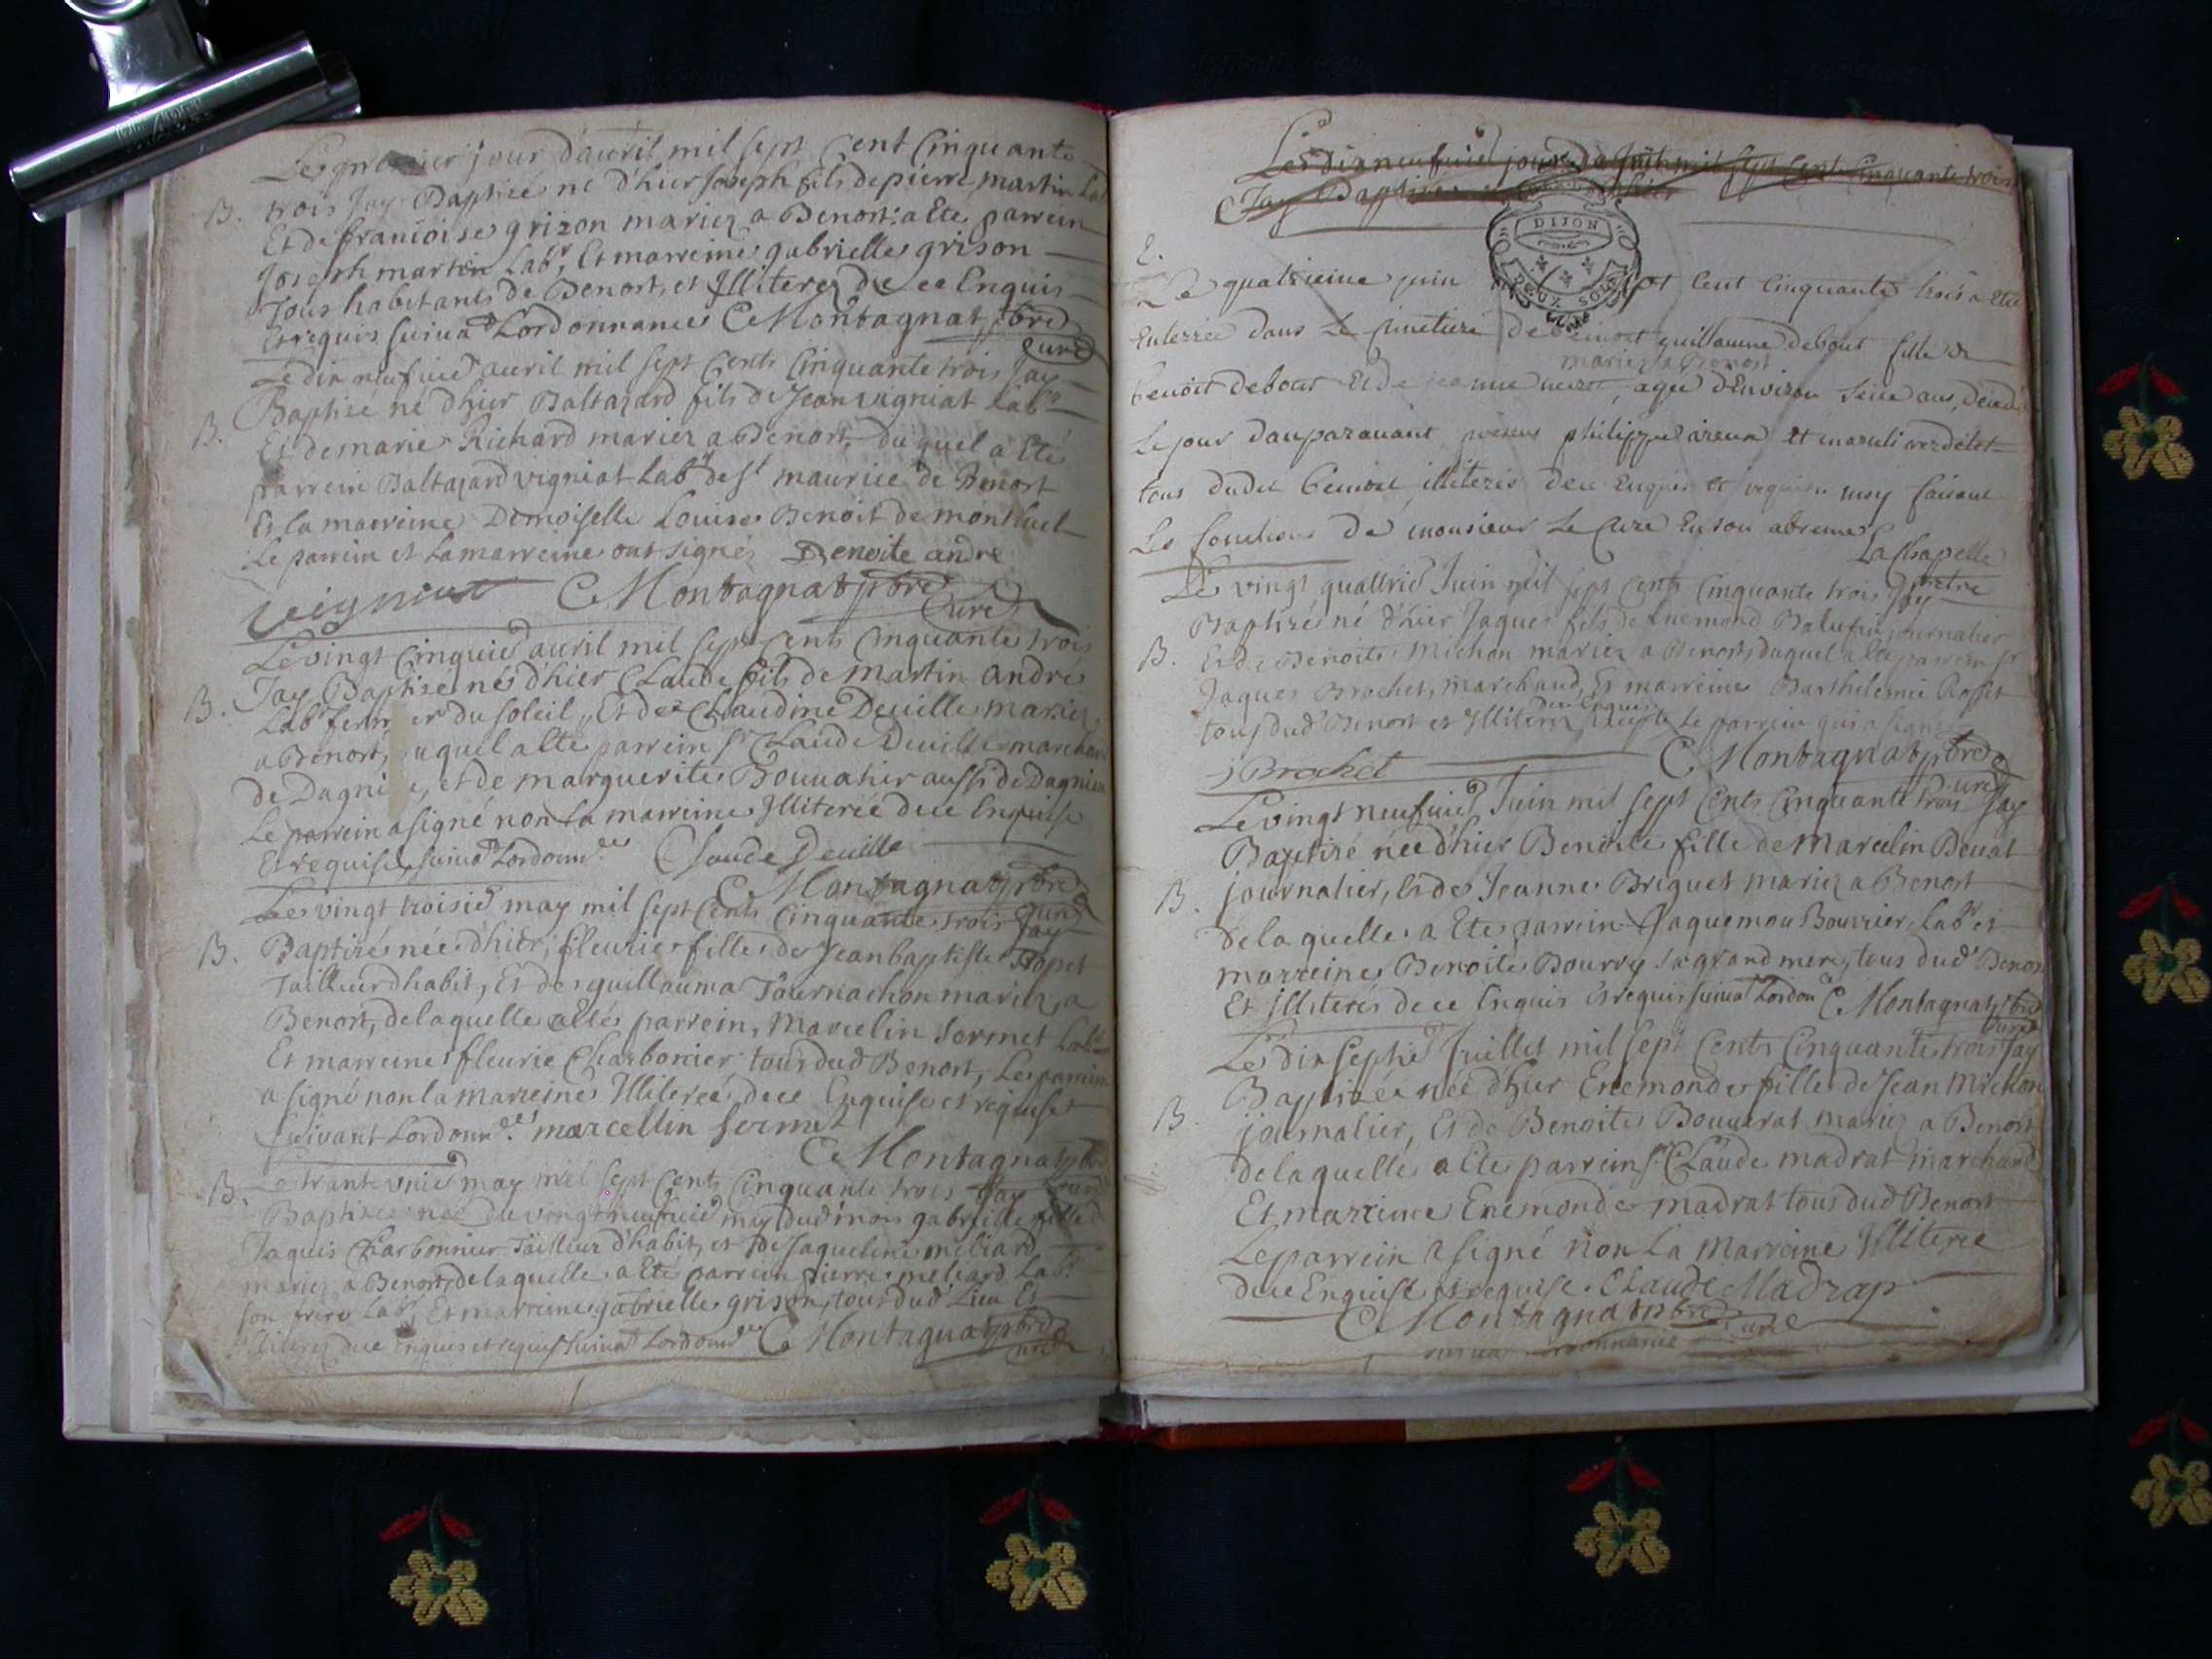 Le premier jour d'avril mil sept Cent Cinquante
B. trois Jay Baptisé né d'hier Joseph fils de pierre martin Lab
Et de francoise grizon mariez a Benost: a Eté parrein
Joseph martin Labr, Et marreine gabrielle grison
Tous habitants de Benost, et Illiterez de ce Enquis
Et requis suivat Lordonnance C Montagnat ptre
Curé
Le dix neufvie avril mil sept Cents Cinquante trois Jay
Baptisé né d'hier Baltazard fils de Jean vigniat Labr
B. Et de marie Richard mariez a Benost, du quel a Eté
parrein Baltazard vigniat Labr de st maurice de Benost
Et la marreine Demoiselle Louise Benoit de montluel
Le parrein et La marreine ont signéz Benoite andre
vigniat C Montagnat ptre
Curé
Le vingt Cinquie avril mil sept Cents Cinquante trois
B. Jay Baptisé né d'hier Claude fils de Martin andré
Labr fermier du soleil, Et de Claudine Deville mariez
a Benost, uquel a Eté parrein sr Claude Deville marchand
de Dagni e, et de marguerite Bouvatier aussi de Dagnieu
Le parrein a signé non La marreine Illiterée de ce Enquise
Et requise, suivat Lordonnce Claude Deville
C Montagnat ptre
Curé
Le vingt troisie may mil sept Cents Cinquante trois Jay
B. Baptizé née d'hier, fleurie fille de Jean baptiste
Tailleur d'habit, Et de guillauma Tournachon mariez a
Benost, de la quelle a Eté parrein, Marcelin Sermet Labr
Et marreine fleurie Charbonier tous dud Benost, Le parrein
a signé non la Marreine Illiterée de ce Enquise et requise
suivant Lordonnce marcellin sermet
C Montagnat ptre
Curé
B. Le trante unie may mil sept Cents Cinquante trois Jay
Baptisée née du vingt neufvie may dud mois gabrielle fille de
Jaques Charbonnier Tailleur d'habit, et de Jaqueline meliard
mariez a Benost, de la quelle a Eté parrein pierre meliard Labr
son frere Labr Et marreine gabrielle grison, tous dud Lieu Et
Illiterez de ce Enquis et requis suivat Lordonnce C Montagnat ptre
Curé
Le dix neufvie jour de Juin mil sept Cent Cinquante trois
Jay Baptisé hier
DIJON
DEUX SOLS
E.
Le quatrieme juin sept Cent Cinquante trois a Eté
Enterrée dans Le Cimetiere de benost guillaume debout fille de
mariez a Benost
benoit debout Et de jeanne agée d'Environ seize ans, decedée
Le jour dauparavant, philippe et
tous dudit benost illiterés de ce Enquis et requis moy faisant
Les fonctions de monsieur Le Curé En son absence
La Chapelle
pretre
Le vingt quattrie Juin mil sept Cents Cinquante trois Jay
Baptisé né d'hier Jaques fils de Enemond journalier
B. Et de Benoite Michon mariez a Benost, duquel a Eté parrein sr
Jaques Brochet, marchand, Et marreine Barthelemie Rosset
de ce Enquis
tous dud Benost et Illiterez Excepté Le parrein qui a signé
j Brochet C Montagnat ptre
Curé
Le vingt neufvie Juin mil sept Cents Cinquante trois Jay
Baptisé née d'hier Benoite fille de Marcelin Benat
B. journalier, Et de Jeanne Briguet mariez a Benost
de la quelle a Eté parrein Jaquemon Bouvier, Labr et
marreine Benoite Bourry sa grand mere, tous dud Benost
Et Illiterés de ce Enquis Et requis suivat Lordonce C Montagnat ptre
Curé
Le dix septie Juillet mil sept Cents Cinquante trois Jay
Baptizée née d'hier Enemonde fille de Jean Michon
B. journalier, Et de Benoite Bouvarat mariez a Benost
de la quelle a Eté parrein sr Claude madrat marchand
Et, marreine Enemonde madrat tous dud Benost
Le parrein a signé non La Marreine Illiteree
de ce Enquise et requise. Claude Madrap
C Montagnat ptre Curé
suivat Lordonnance